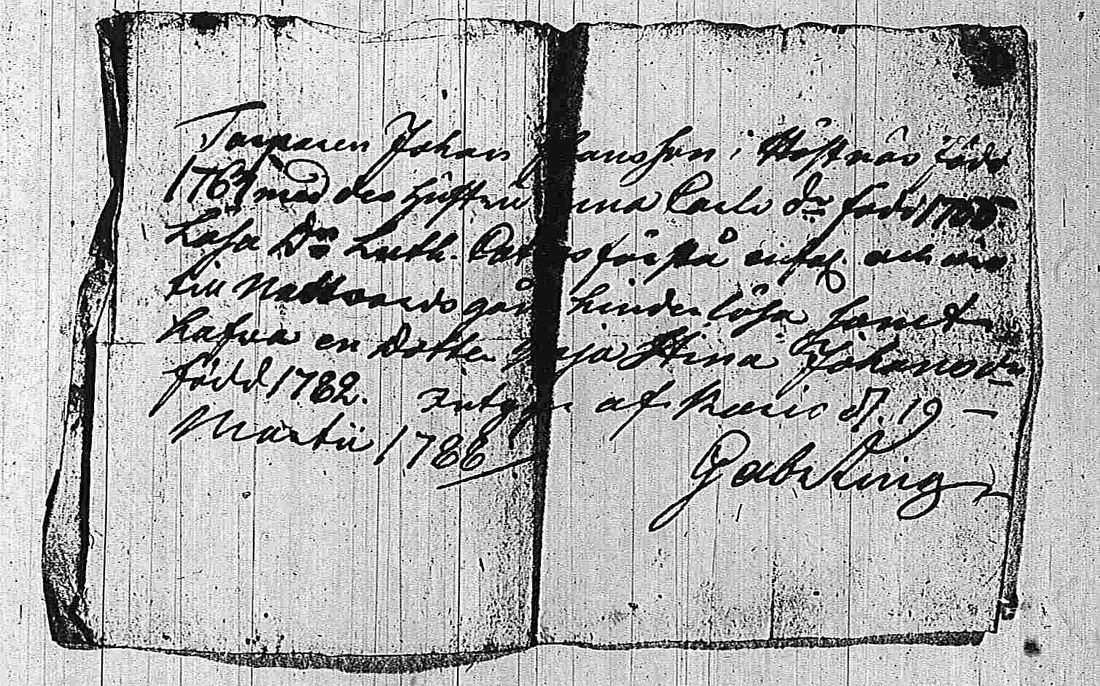 Torparen Johan Hansson i Höstnäs född
1761 med des Hustru Anna Carls Dr född 17
Läsa Dr Luth. Catec förstå enfal. och
till Nattvards gå hinderlösa samt
hafva en Dotter Maja Stina Johansdr
född 1782. Intygar af Maris d. 19 –
Martii 1786
Gabr Ring